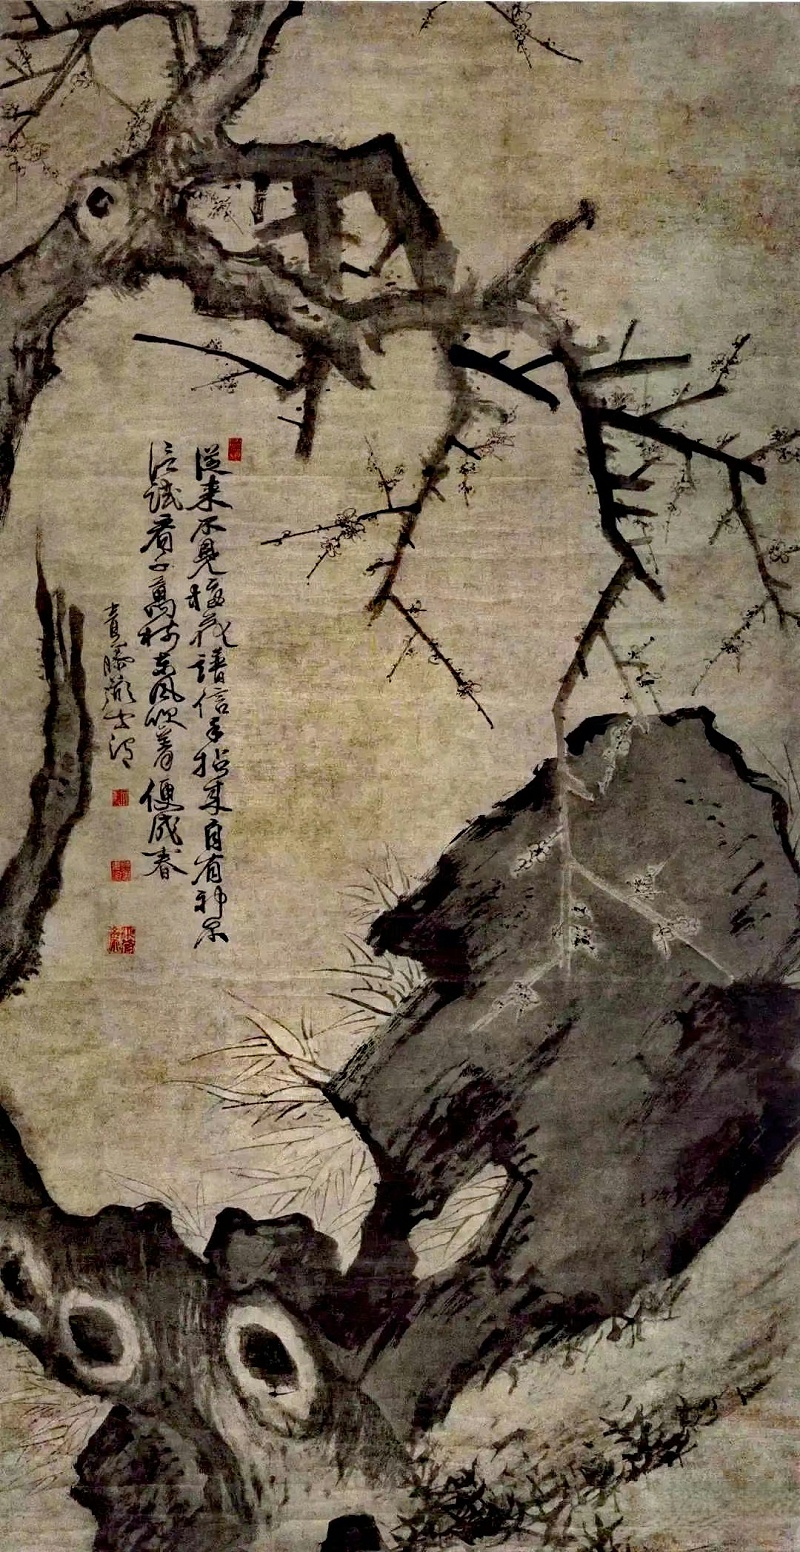 從来不見梅花譜信手拈来自有神不
信試看千萬樹東風吹着便成春
青藤道士渭